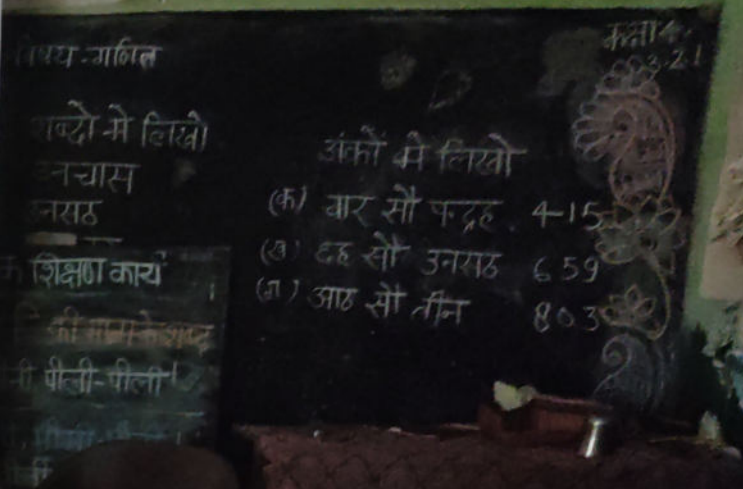 विषय-गणित
कक्षा 4
3.2.1
शब्दो मे लिखो
उनचास
उनसठ
अंकों मे लिखो
(क) चार सौ पन्द्रह 415
(ख) छह सौ उनसठ 659
(ग) आठ सौ तीन 803
शिक्षण कार्य
की
पीली-पीली